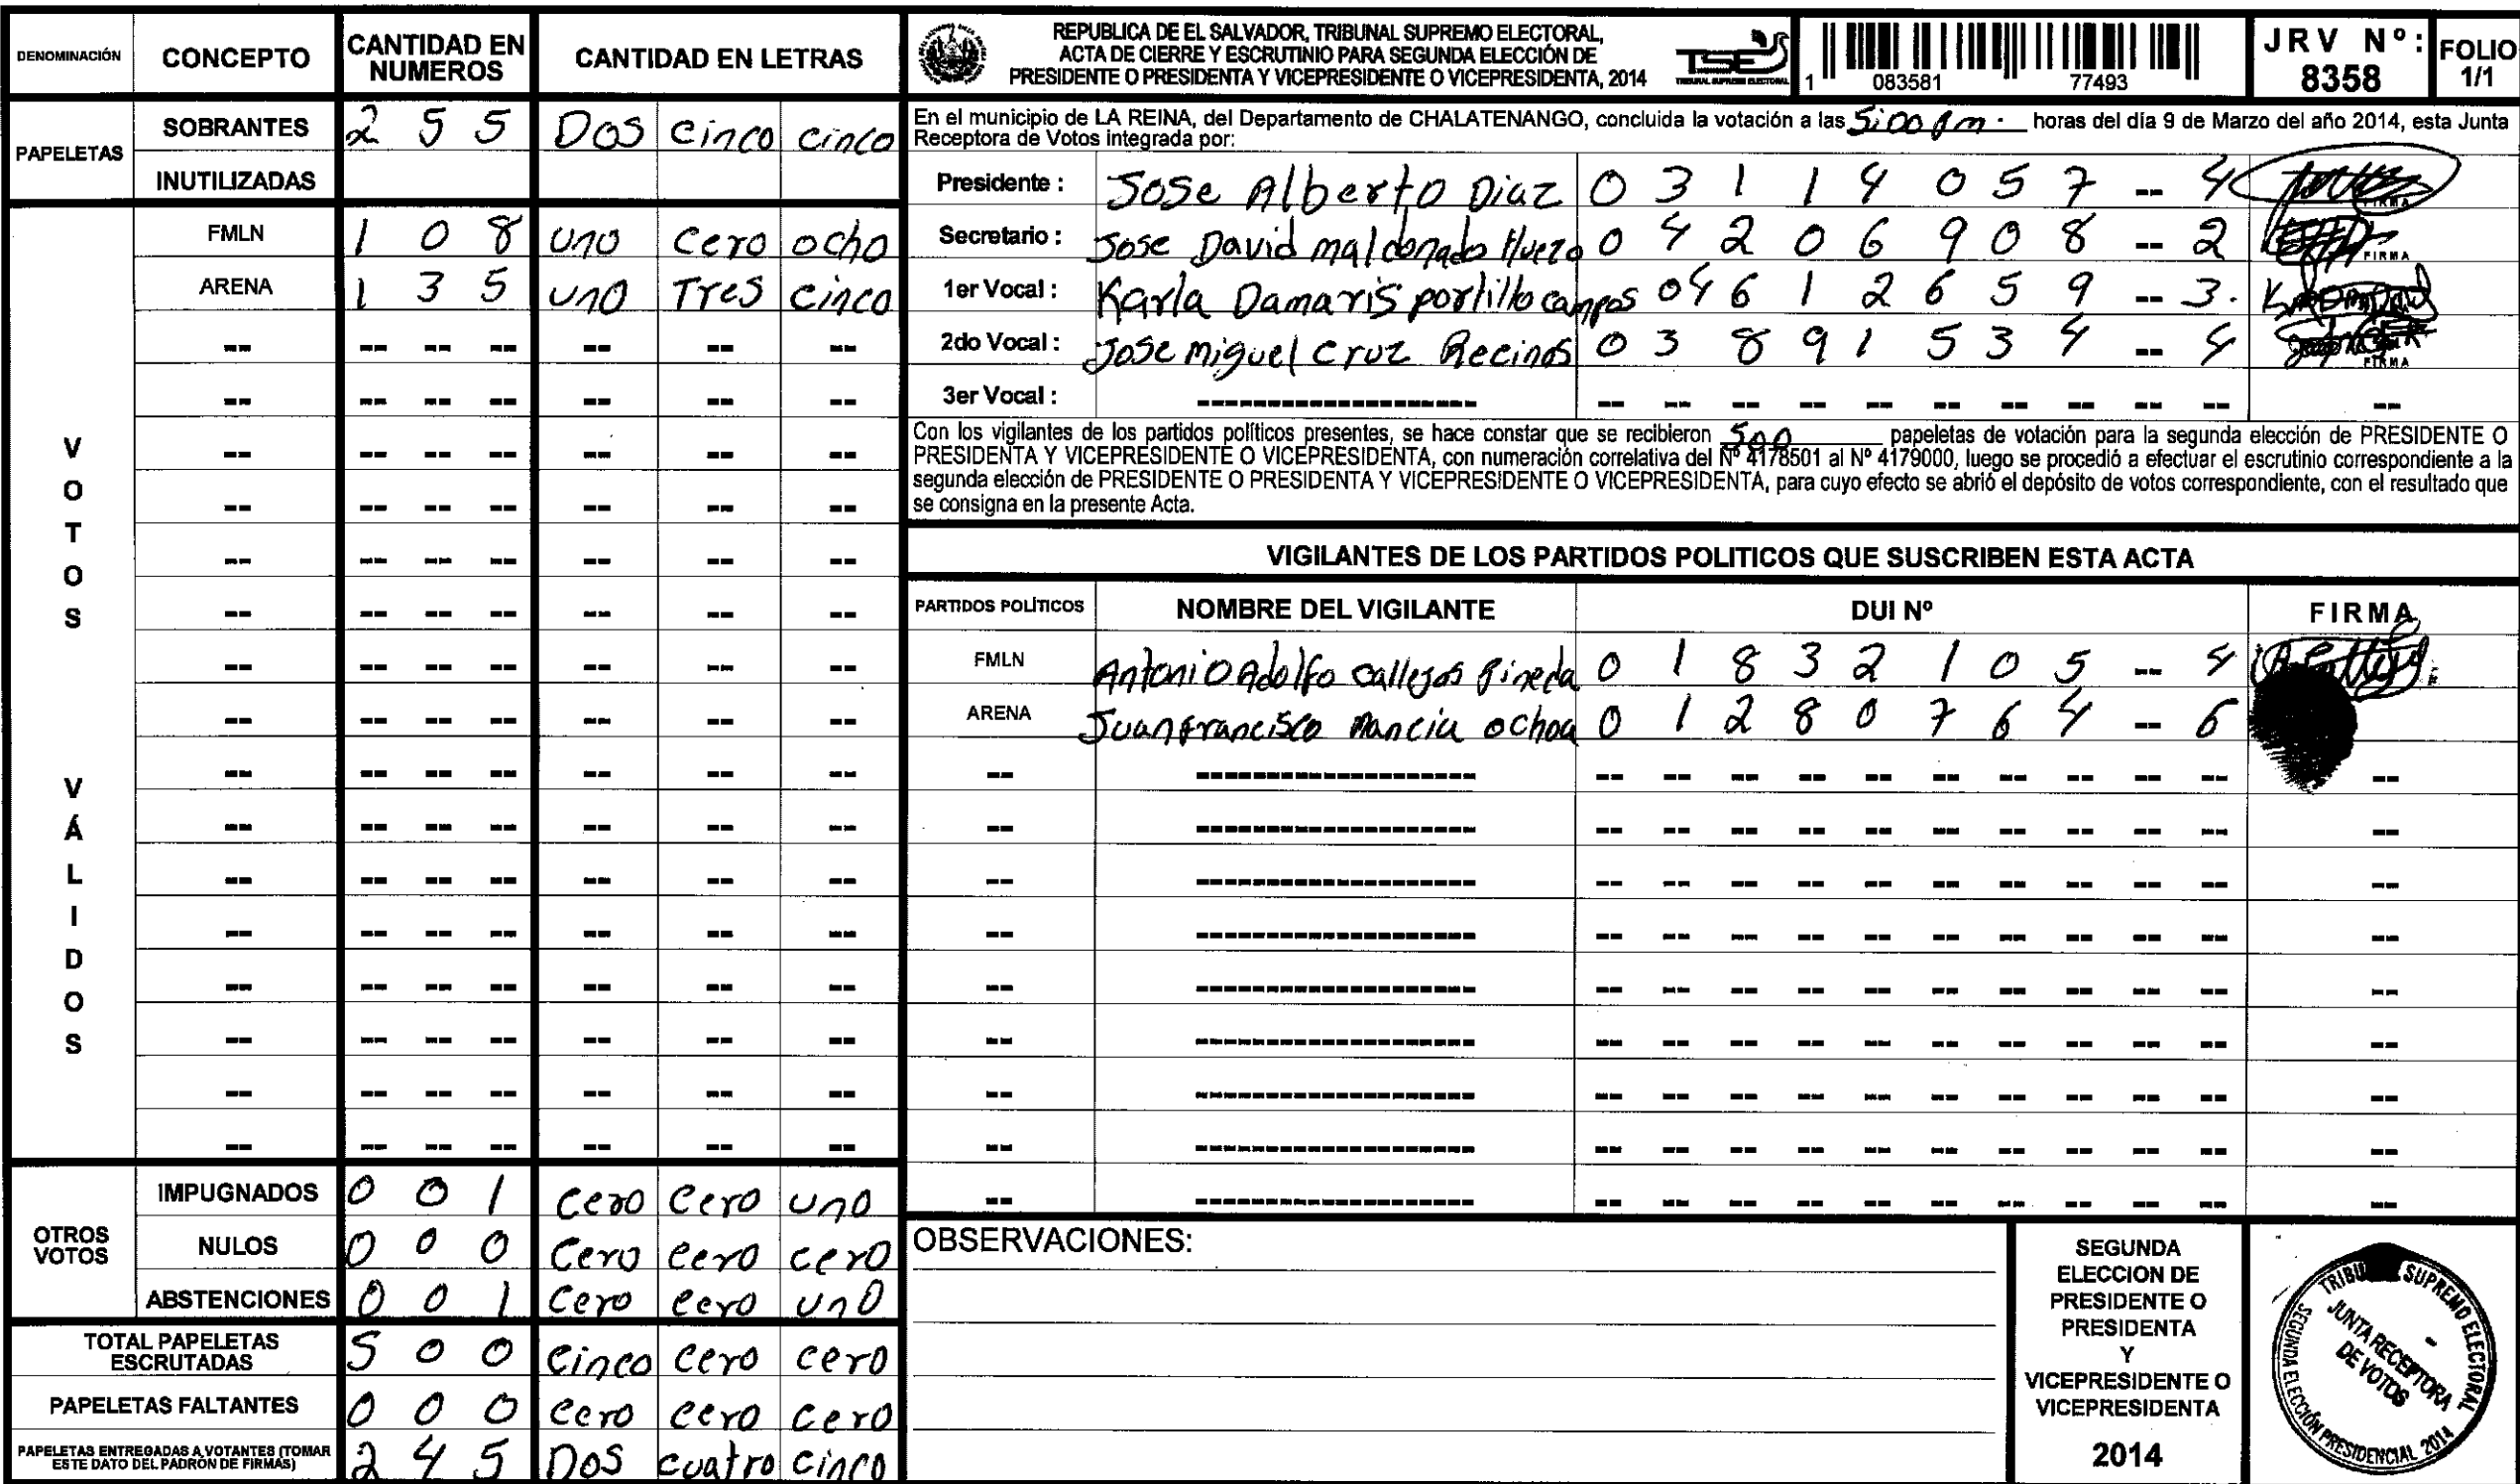 DENOMINACIÓN CONCEPTO CANTIDAD EN NUMEROS CANTIDAD EN LETRAS
PAPELETAS
SOBRANTES 2 5 5 DOS cinco cinco
INUTILIZADAS
VOTOS VÁLIDOS
FMLN 1 0 8 uno cero ocho
ARENA 1 3 5 uno Tres cinco
OTROS VOTOS
IMPUGNADOS 0 0 1 cero cero uno
NULOS 0 0 0 cero cero cero
ABSTENCIONES 0 0 1 cero cero uno
TOTAL PAPELETAS ESCRUTADAS 5 0 0 cinco cero cero
PAPELETAS FALTANTES 0 0 0 cero cero cero
PAPELETAS ENTREGADAS A VOTANTES (TOMAR ESTE DATO DEL PADRON DE FIRMAS) 2 4 5 DOS cuatro cinco
REPUBLICA DE EL SALVADOR, TRIBUNAL SUPREMO ELECTORAL,
ACTA DE CIERRE Y ESCRUTINIO PARA SEGUNDA ELECCIÓN DE
PRESIDENTE O PRESIDENTA Y VICEPRESIDENTE O VICEPRESIDENTA, 2014
TSE
TRIBUNAL SUPREMO ELECTORAL
1 083581 77493
JRV Nº: 8358
FOLIO 1/1
En el municipio de LA REINA, del Departamento de CHALATENANGO, concluida la votación a las 5:00 pm. horas del día 9 de Marzo del año 2014, esta Junta
Receptora de Votos integrada por:
Presidente : Jose Alberto Diaz 0 3 1 1 4 0 5 7 -- 4 FIRMA
Secretario : Jose David maldonado Huezo 0 4 2 0 6 9 0 8 -- 2 FIRMA
1er Vocal : Karla Damaris portillo campos 0 4 6 1 2 6 5 9 -- 3.
2do Vocal : Jose miguel cruz Recinos 0 3 8 9 1 5 3 4 -- 4 FIRMA
3er Vocal :
Con los vigilantes de los partidos políticos presentes, se hace constar que se recibieron 500 papeletas de votación para la segunda elección de PRESIDENTE O
PRESIDENTA Y VICEPRESIDENTE O VICEPRESIDENTA, con numeración correlativa del Nº 4178501 al Nº 4179000, luego se procedió a efectuar el escrutinio correspondiente a la
segunda elección de PRESIDENTE O PRESIDENTA Y VICEPRESIDENTE O VICEPRESIDENTA, para cuyo efecto se abrió el depósito de votos correspondiente, con el resultado que
se consigna en la presente Acta.
VIGILANTES DE LOS PARTIDOS POLITICOS QUE SUSCRIBEN ESTA ACTA
PARTIDOS POLÍTICOS NOMBRE DEL VIGILANTE DUI Nº FIRMA
FMLN Antonio Adolfo Callejas Pineda 0 1 8 3 2 1 0 5 -- 4
ARENA Juan francisco mancia ochoa 0 1 2 8 0 7 6 4 -- 6
OBSERVACIONES:
SEGUNDA
ELECCION DE
PRESIDENTE O
PRESIDENTA
Y
VICEPRESIDENTE O
VICEPRESIDENTA
2014
SUPREMO ELECTORAL
JUNTA RECEPTORA
DE VOTOS
SEGUNDA ELECCIÓN PRESIDENCIAL 2014